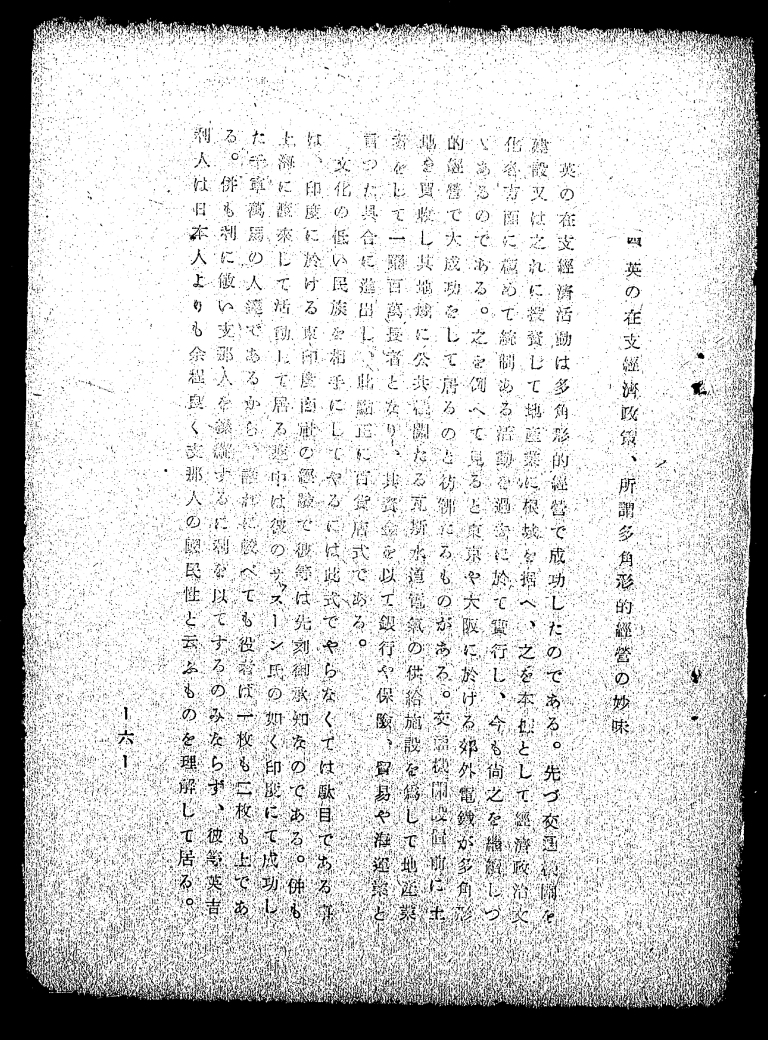 四 英の在支經濟政策、所謂多角形的經營の妙味
英の在支經濟活動は多角形的經營で成功したのである。先づ交通機關を
建設又は之れに投資して地產業に根城を据へ、之を本據として經濟政治文
化各方面に極めて統制ある活動を過去に於て實行し、今も尙之を繼續しつ
ゝあるのである。之を例へて見ると東京や大阪に於ける郊外電鐵が多角形
的經營で大成功をして居るのと彷彿たるものがある。交通機關設置前に土
地を買收し其地域に公共機關たる瓦斯水道電氣の供給施設を爲して地產業
者をして一躍百萬長者となり、其資金を以て銀行や保險、貿易や海運業と
言つた具合に進出し、此點正に百貨店式である。
文化の低い民族を相手にしてやるには此式でやらなくては駄目である事
は、印度に於ける東印度商會の經驗で彼等は先刻御承知なのである。併も
上海に渡來して活動して居る連中は彼のサスーン氏の如く印度にて成功し
た千軍萬馬の人達であるから、誰れに較べても役者は一枚も二枚も上であ
る。併も利に敏い支那人を操縱するに利を以てするのみならず、彼等英吉
利人は日本人よりも余程良く支那人の國民性と云ふものを理解して居る。
ー六ー